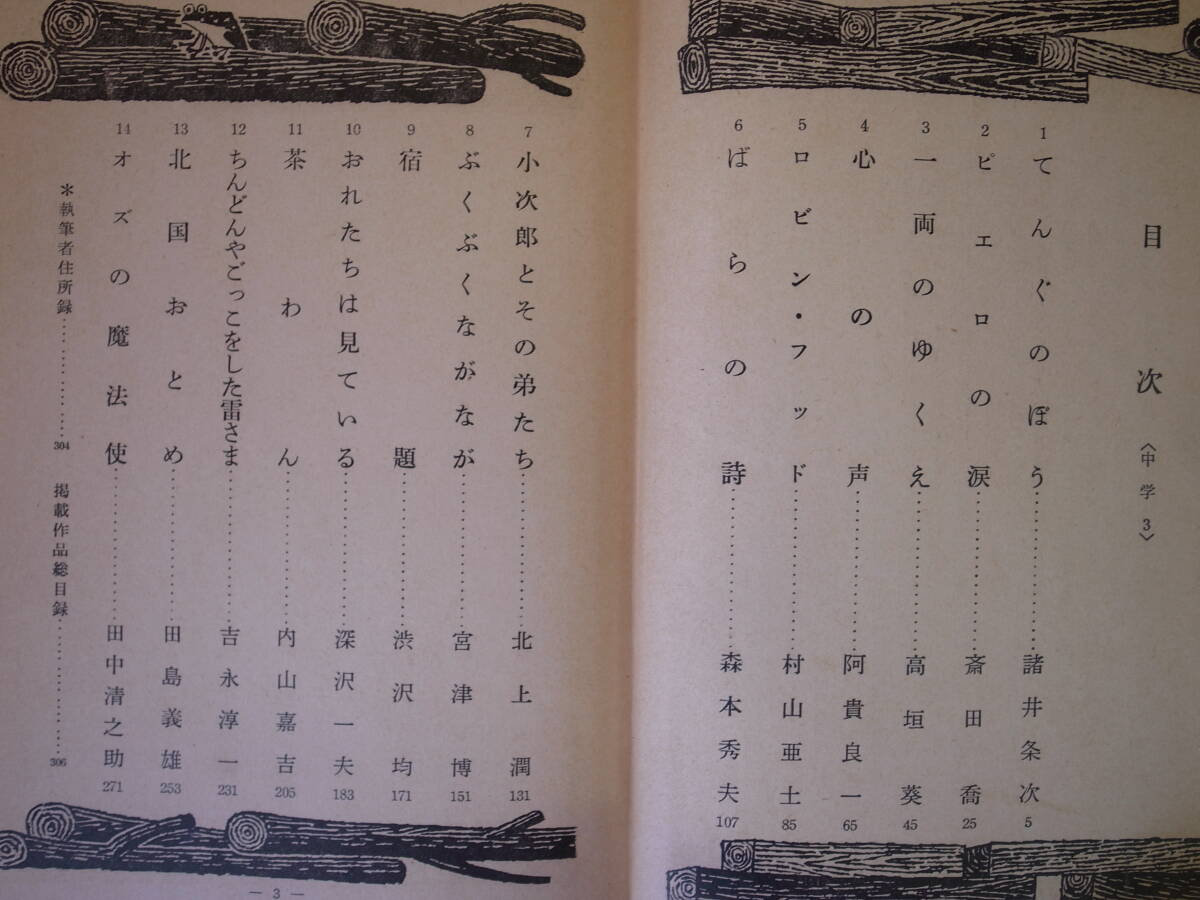 目次〈中学3〉
1 てんぐのぼう…………諸井条次 5
2 ピエロの涙…………斎田喬 25
3 一両のゆくえ…………高垣葵 45
4 心の声…………阿貴良一 65
5 ロビン・フッド…………村山亜土 85
6 ばらの詩…………森本秀夫 107
7 小次郎とその弟たち…………北上潤 131
8 ぶくぶくながながが…………宮津博 151
9 宿題…………渋沢均 171
10 おれたちは見ている…………深沢一夫 183
11 茶わん…………内山嘉吉 205
12 ちんどんやごっこをした雷さま…………吉永淳一 231
13 北国おとめ…………田島義雄 253
14 オズの魔法使…………田中清之助 271
＊執筆者住所録…………304 掲載作品総目録…………306
— 3 —